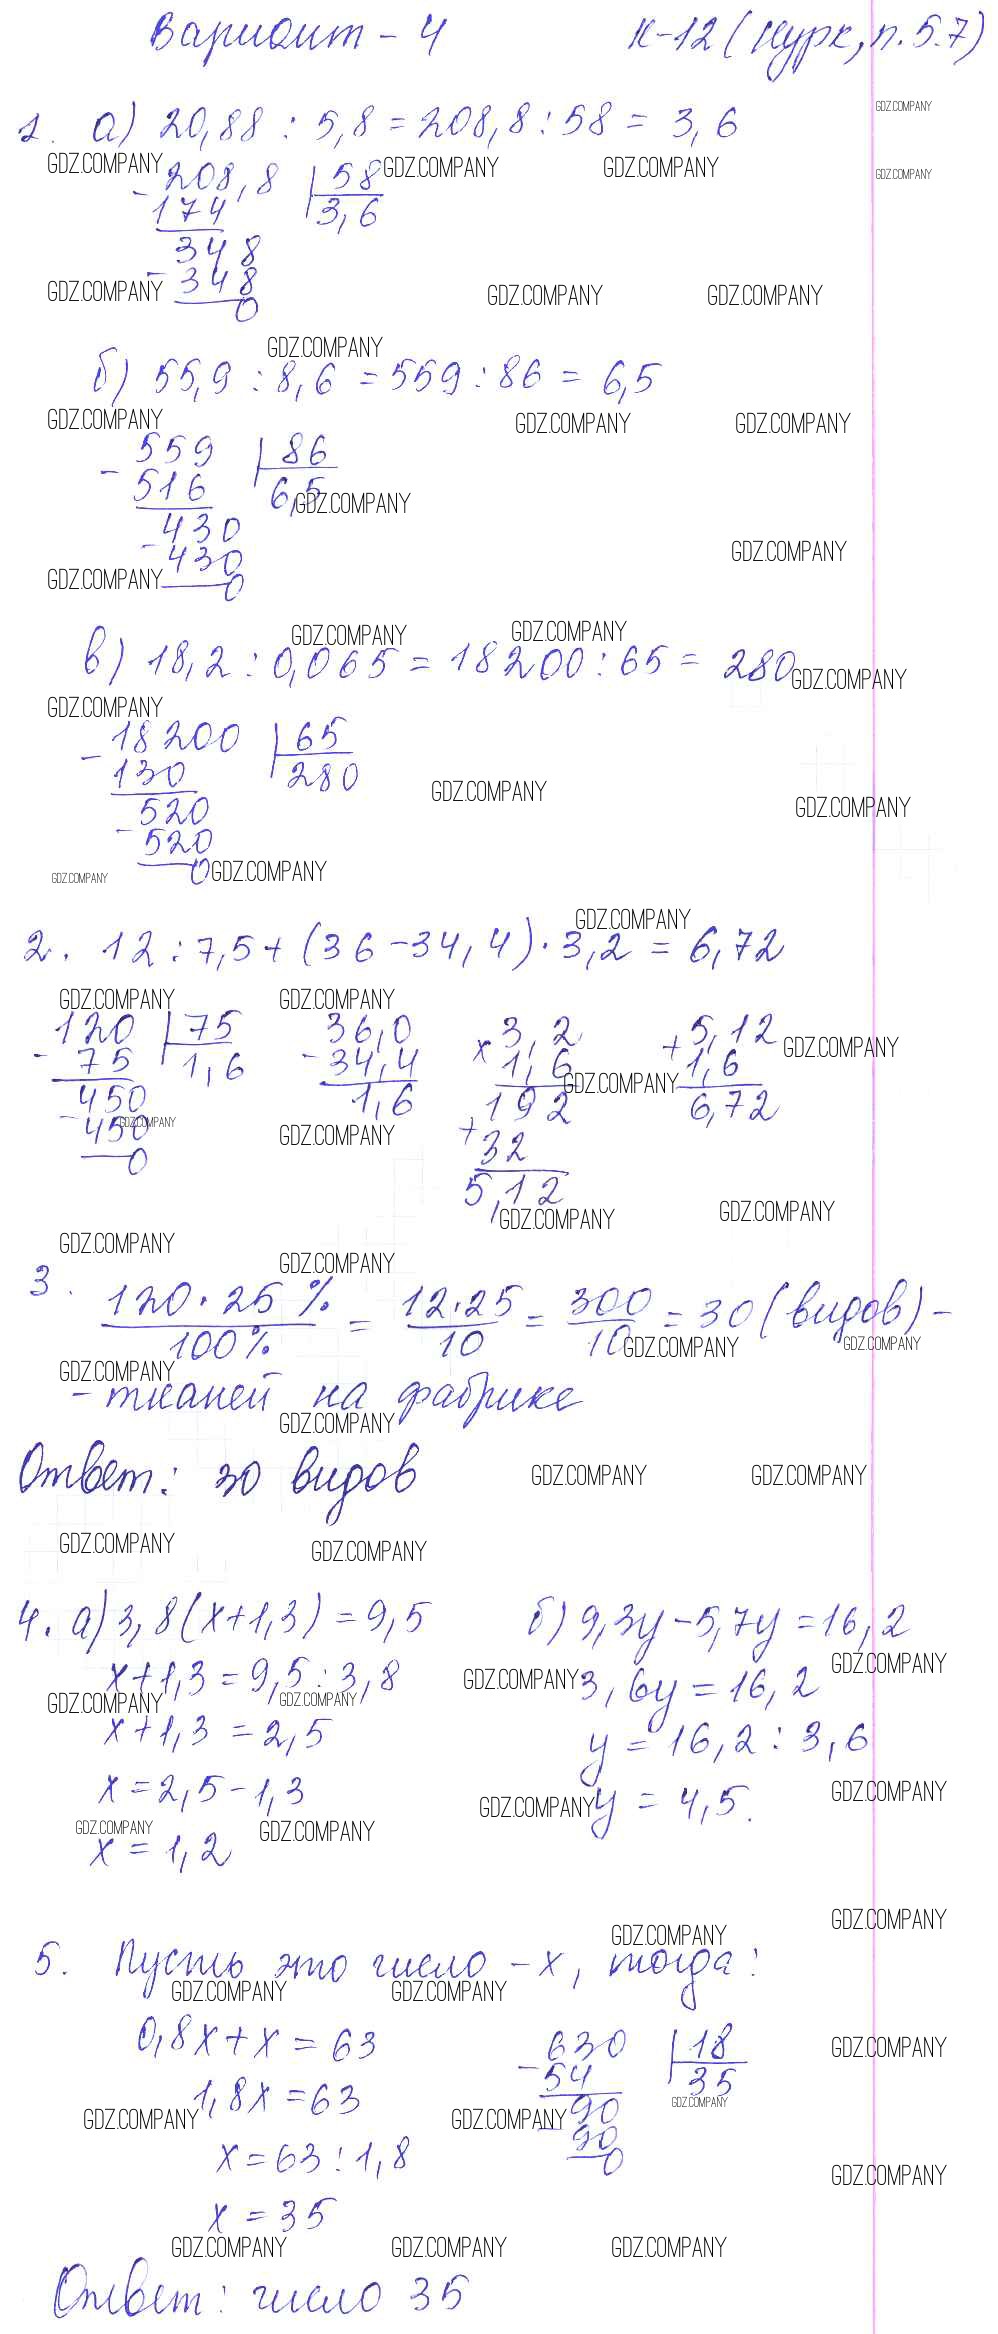 Вариант - 4 К-12 (Нурк, п. 5.7)
1. а) 20,88 : 5,8 = 208,8 : 58 = 3,6
- 208,8 | 58
174 3,6
348
- 348
0
б) 55,9 : 8,6 = 559 : 86 = 6,5
- 559 | 86
516 6,5
430
- 430
0
в) 18,2 : 0,065 = 18200 : 65 = 280
- 18200 | 65
130 280
520
- 520
0
2. 12 : 7,5 + (36 - 34,4) · 3,2 = 6,72
120 | 75 36,0 3,2 5,12
- 75 1,6 - 34,4 × 1,6 + 1,6
450 1,6 192 6,72
- 450 + 32
0 5,12
3. 120 · 25 % / 100% = 12·25 / 10 = 300 / 10 = 30 (видов) -
- тканей на фабрике
Ответ: 30 видов
4. а) 3,8(x+1,3) = 9,5 б) 9,3y - 5,7y = 16,2
x+1,3 = 9,5 : 3,8 3,6y = 16,2
x+1,3 = 2,5 y = 16,2 : 3,6
x = 2,5 - 1,3 y = 4,5.
x = 1,2
5. Пусть это число - x, тогда:
0,8x + x = 63 630 | 18
1,8x = 63 - 54 35
x = 63 : 1,8 90
x = 35 - 90
0
Ответ: число 35
GDZ.COMPANY